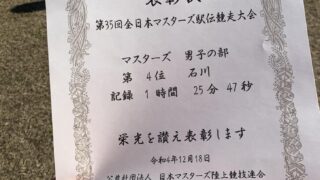 表彰状
第35回全日本マスターズ駅伝競走大会
マスターズ 男子の部
第 4 位 石川
記録 1 時間 25 分 47 秒
栄光を讃え表彰します
令和4年12月18日
公益社団法人 日本マスターズ陸上競技連合